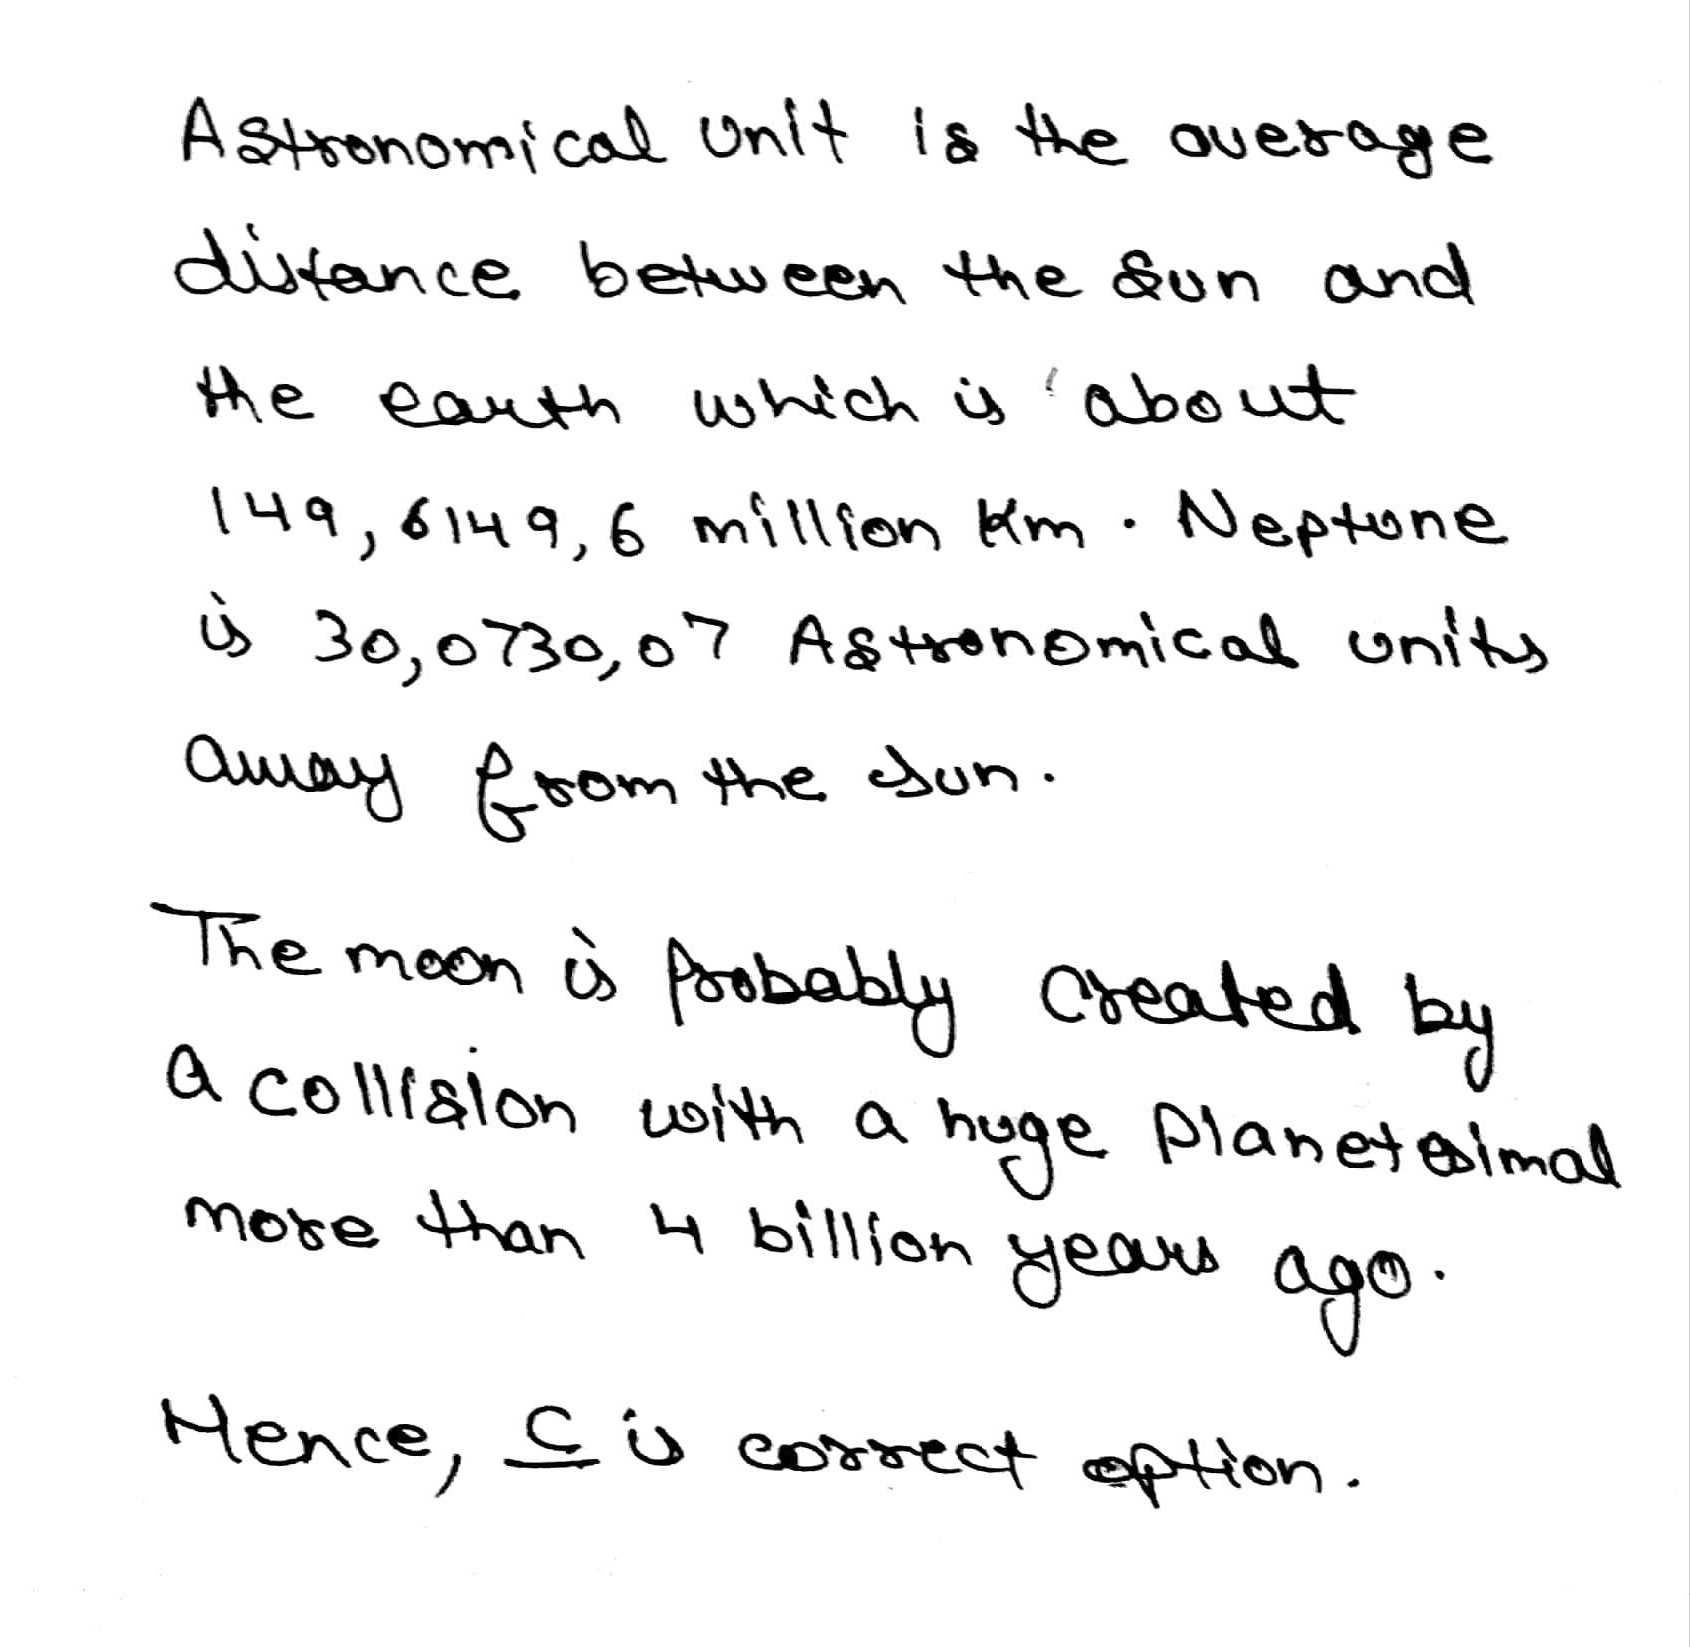 Astronomical unit is the average
distance between the sun and
the earth which is about
149,6149,6 million Km. Neptune
is 30,0730,07 Astronomical units
away from the sun.
The moon is probably created by
a collision with a huge planetesimal
more than 4 billion years ago.
Hence, C is correct option.